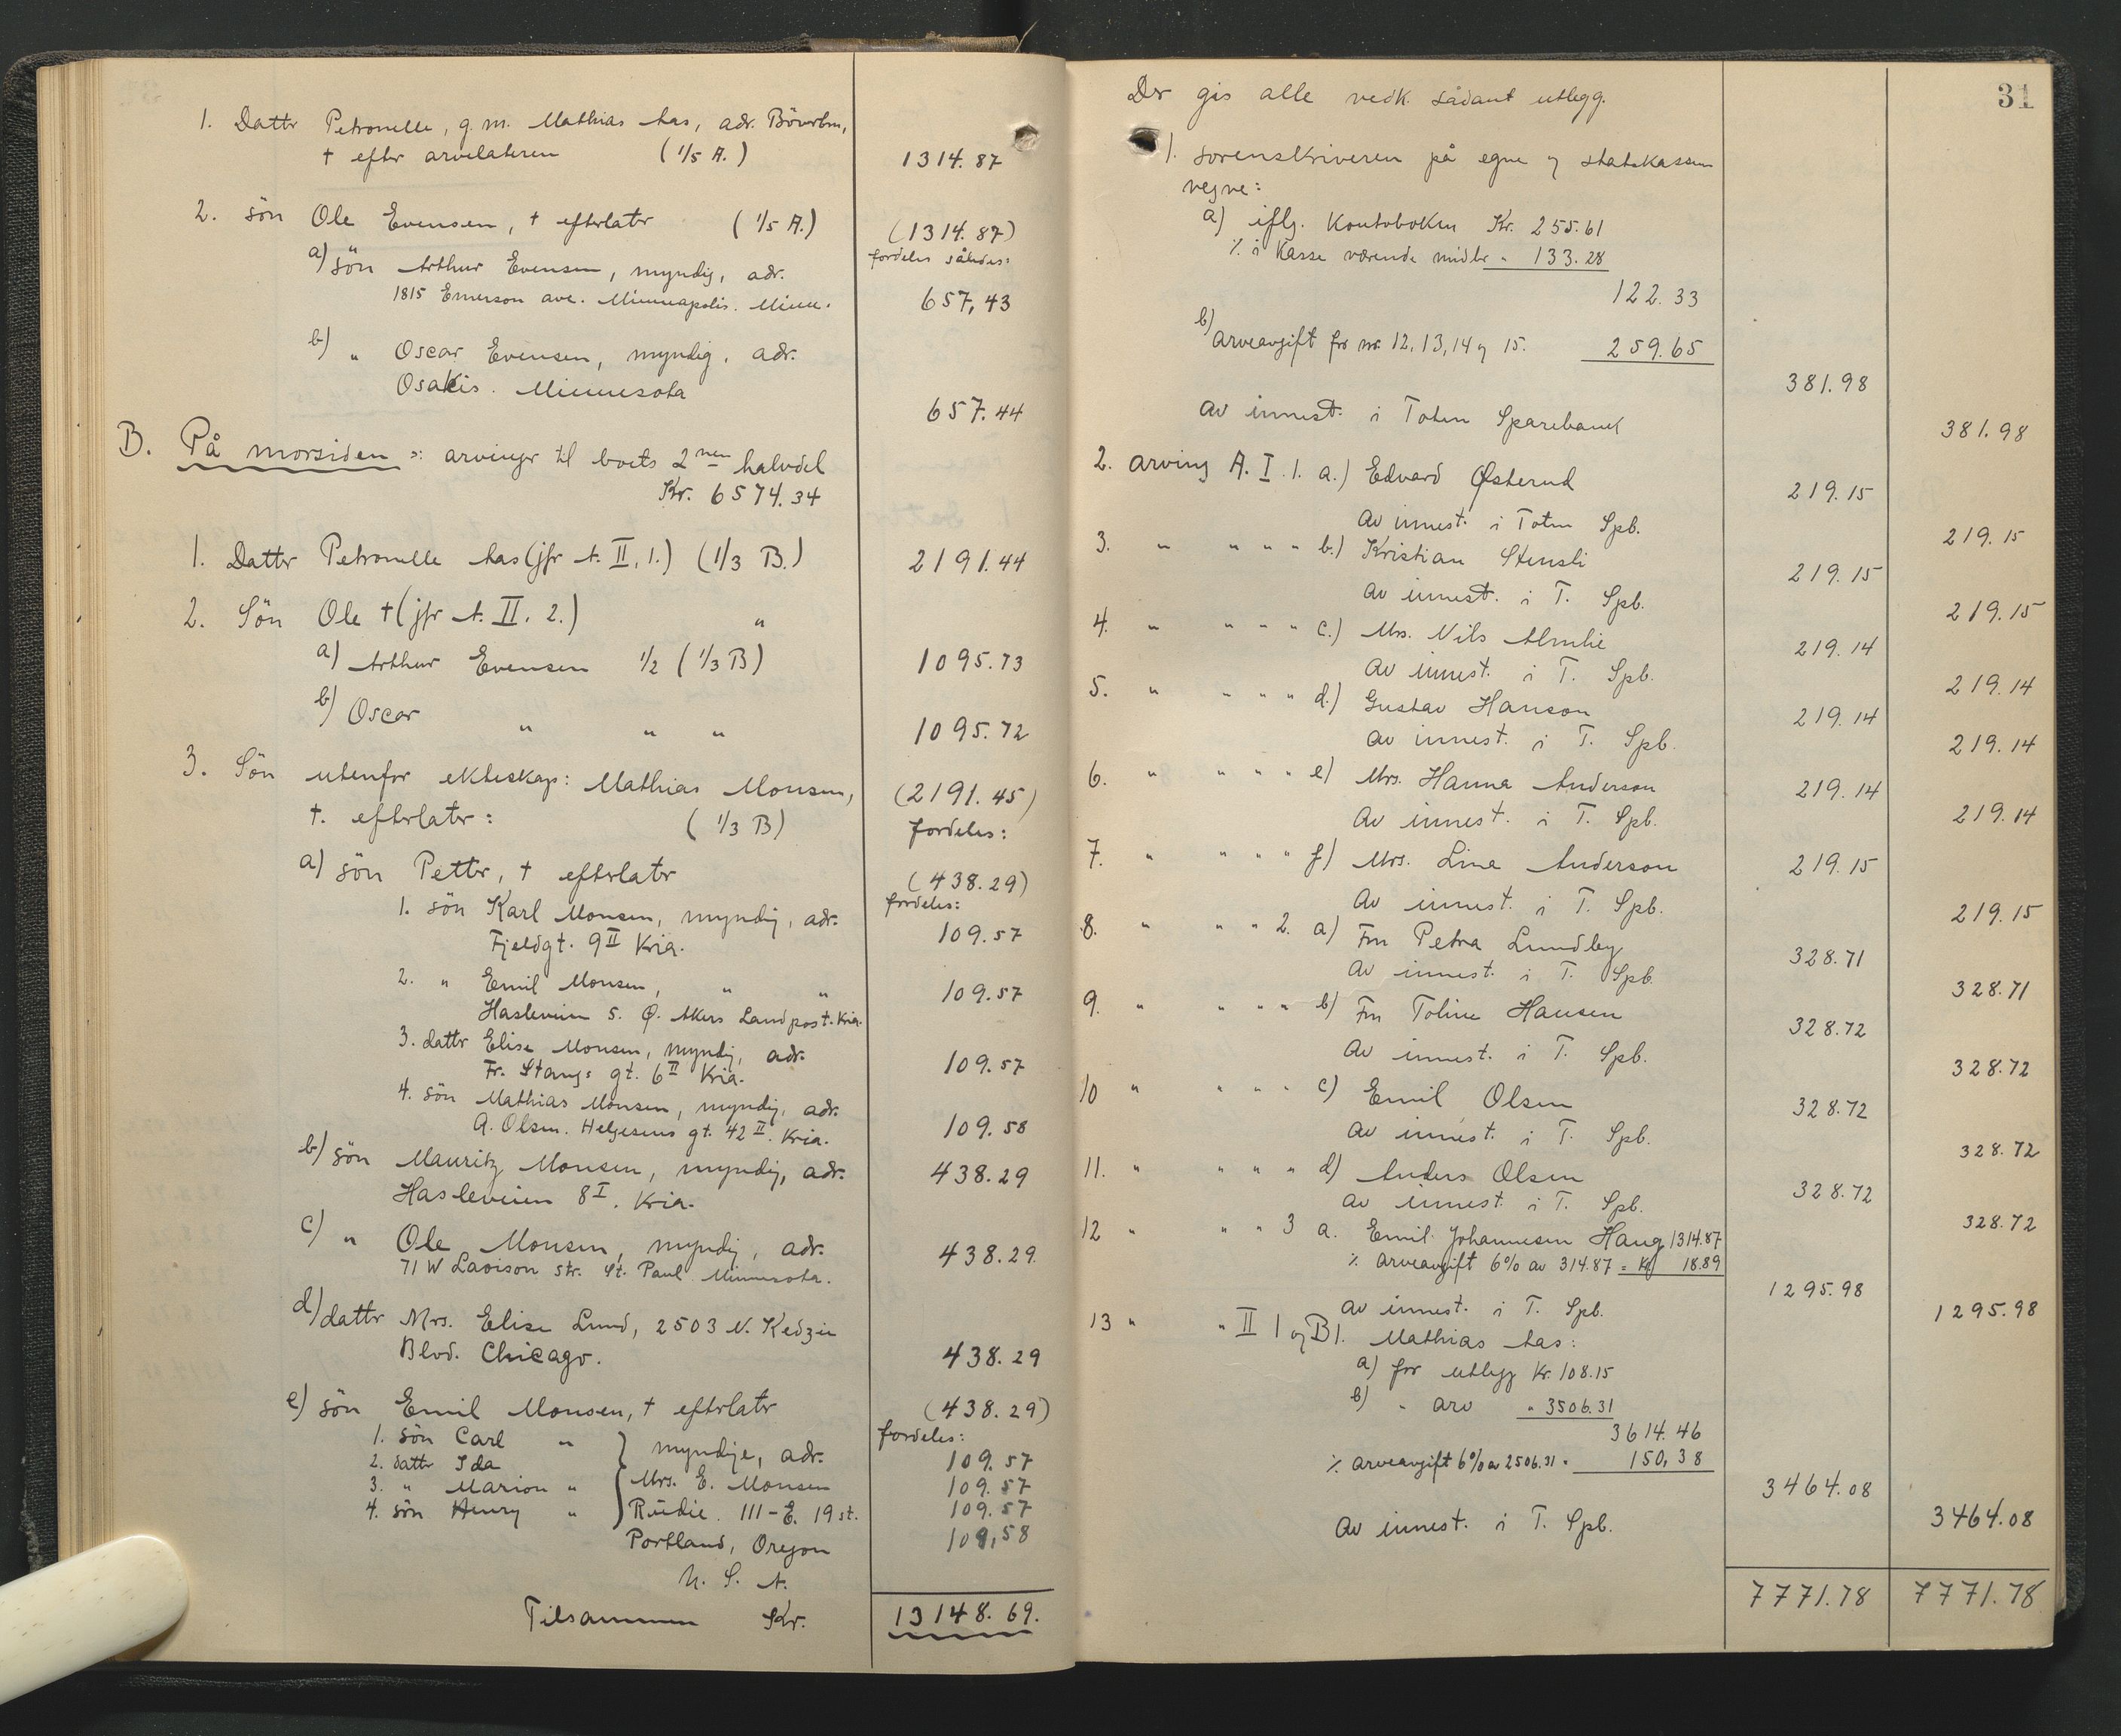 1. Datter Petronelle, g.m. Mathias Aas, adr. Böverbru,
† efter arvelateren (1/5 A.) 1314.87
2. sön Ole Evensen, † efterlater (1/5 A.) (1314.87)
fordeles således:
a) sön Arthur Evensen, myndig, adr.
1815 Emerson ave. Minneapolis. Minn. 657,43
b) " Oscar Evensen, myndig, adr.
Osakis. Minnesota 657.44
B. På morsiden ɔ: arvinger til boets 2nen halvdel
Kr. 6574.34
1. Datter Petronelle Aas (jfr A. II, 1.) (1/3 B.) 2191.44
2. Sön Ole † (jfr A. II. 2.) "
a) Arthur Evensen 1/2 (1/3 B) 1095.73
b) Oscar " " " 1095.72
3. Sön utenfor ekteskap: Mathias Monsen, (2191.45)
†. efterlater: (1/3 B) fordeles:
a) sön Petter, † efterlater (438.29)
fordeles:
1. sön Karl Monsen, myndig, adr.
Fjeldgt. 9 II Kria. 109.57
2. " Emil Monsen, " " 109.57
Hasleveien 5. Ø. Akers Landpost. Kria.
3. datter Elise Monsen, myndig, adr.
Fr. Stangs gt. 6 II Kria. 109.57
4. sön Mathias Monsen, myndig, adr.
A. Olsen. Helgesens gt. 42 II. Kria. 109.58
b) sön Mauritz Monsen, myndig, adr. 438.29
Hasleveien 8 I. Kria.
c) " Ole Monsen, myndig, adr. 438.29.
71 W Lavison str. St. Paul Minnesota.
d) datter Mrs. Elise Lund, 2503 N. Kedzie
Blvd. Chicago. 438.29
e) sön Emil Monsen, † efterlater (438.29)
fordeles:
1. sön Carl " } myndige, adr. 109.57
2. datter Ida
3. " Marion " Mrs. E. Monsen 109.57
4. sön Henry " Rudie. 111 - E. 19 st. 109.57
Portland, Oregon 109,58
U. S. A.
Tilsammen Kr. 13148.69.
31
Der gis alle vedk. sådant utlegg.
1. sorenskriveren på egne og statskassens
vegne:
a) iflg. kontoboken Kr. 255.61
% i kasse værende midler " 133.28
122.33
b) arveavgift for nr. 12, 13, 14 og 15. 259.65
381.98
Av innest. i Toten Sparebank 381.98
2. arving A. I. 1. a.) Edvard Østerud 219.15
Av innest. i Toten Spb. 219.15
3. " " " " b.) Kristian Stensli 219.15
av innest. i T. Spb. 219.15
4. " " " " c.) Mrs. Nils Almlie 219.14
Av innest. i T. Spb. 219.14
5. " " " " d.) Gustav Hanson 219.14
av innest. i T. Spb. 219.14
6. " " " " e) Mrs. Hanna Anderson 219.14
Av innest. i T. Spb. 219.14
7. " " " " f) Mrs. Line Anderson 219.15
Av innest. i T. Spb. 219.15
8. " " " 2. a) Fru Petra Lundby 328.71
Av innest. i T. Spb. 328.71
9. " " " " b) Fru Toline Hansen 328.72
Av innest. i T. Spb. 328.72
10 " " " " c) Emil Olsen 328.72
Av innest. i T. Spb. 328.72
11. " " " " d) Anders Olsen 328.72
Av innest. i T. Spb. 328.72
12 " " " 3 a. Emil Johannesen Haug 1314.87
% arveavgift 6% av 314.87 = Kr 18.89
1295.98
Av innest. i T. Spb. 1295.98
13 " " II 1 og B 1. Mathias Aas:
a) for utlegg Kr. 108.15
b) " arv " 3506.31
3614.46
% arveavgift 6% av 2506.31 = 150,38
3464.08
Av innest. i T. Spb. 3464.08
7771.78 7771.78